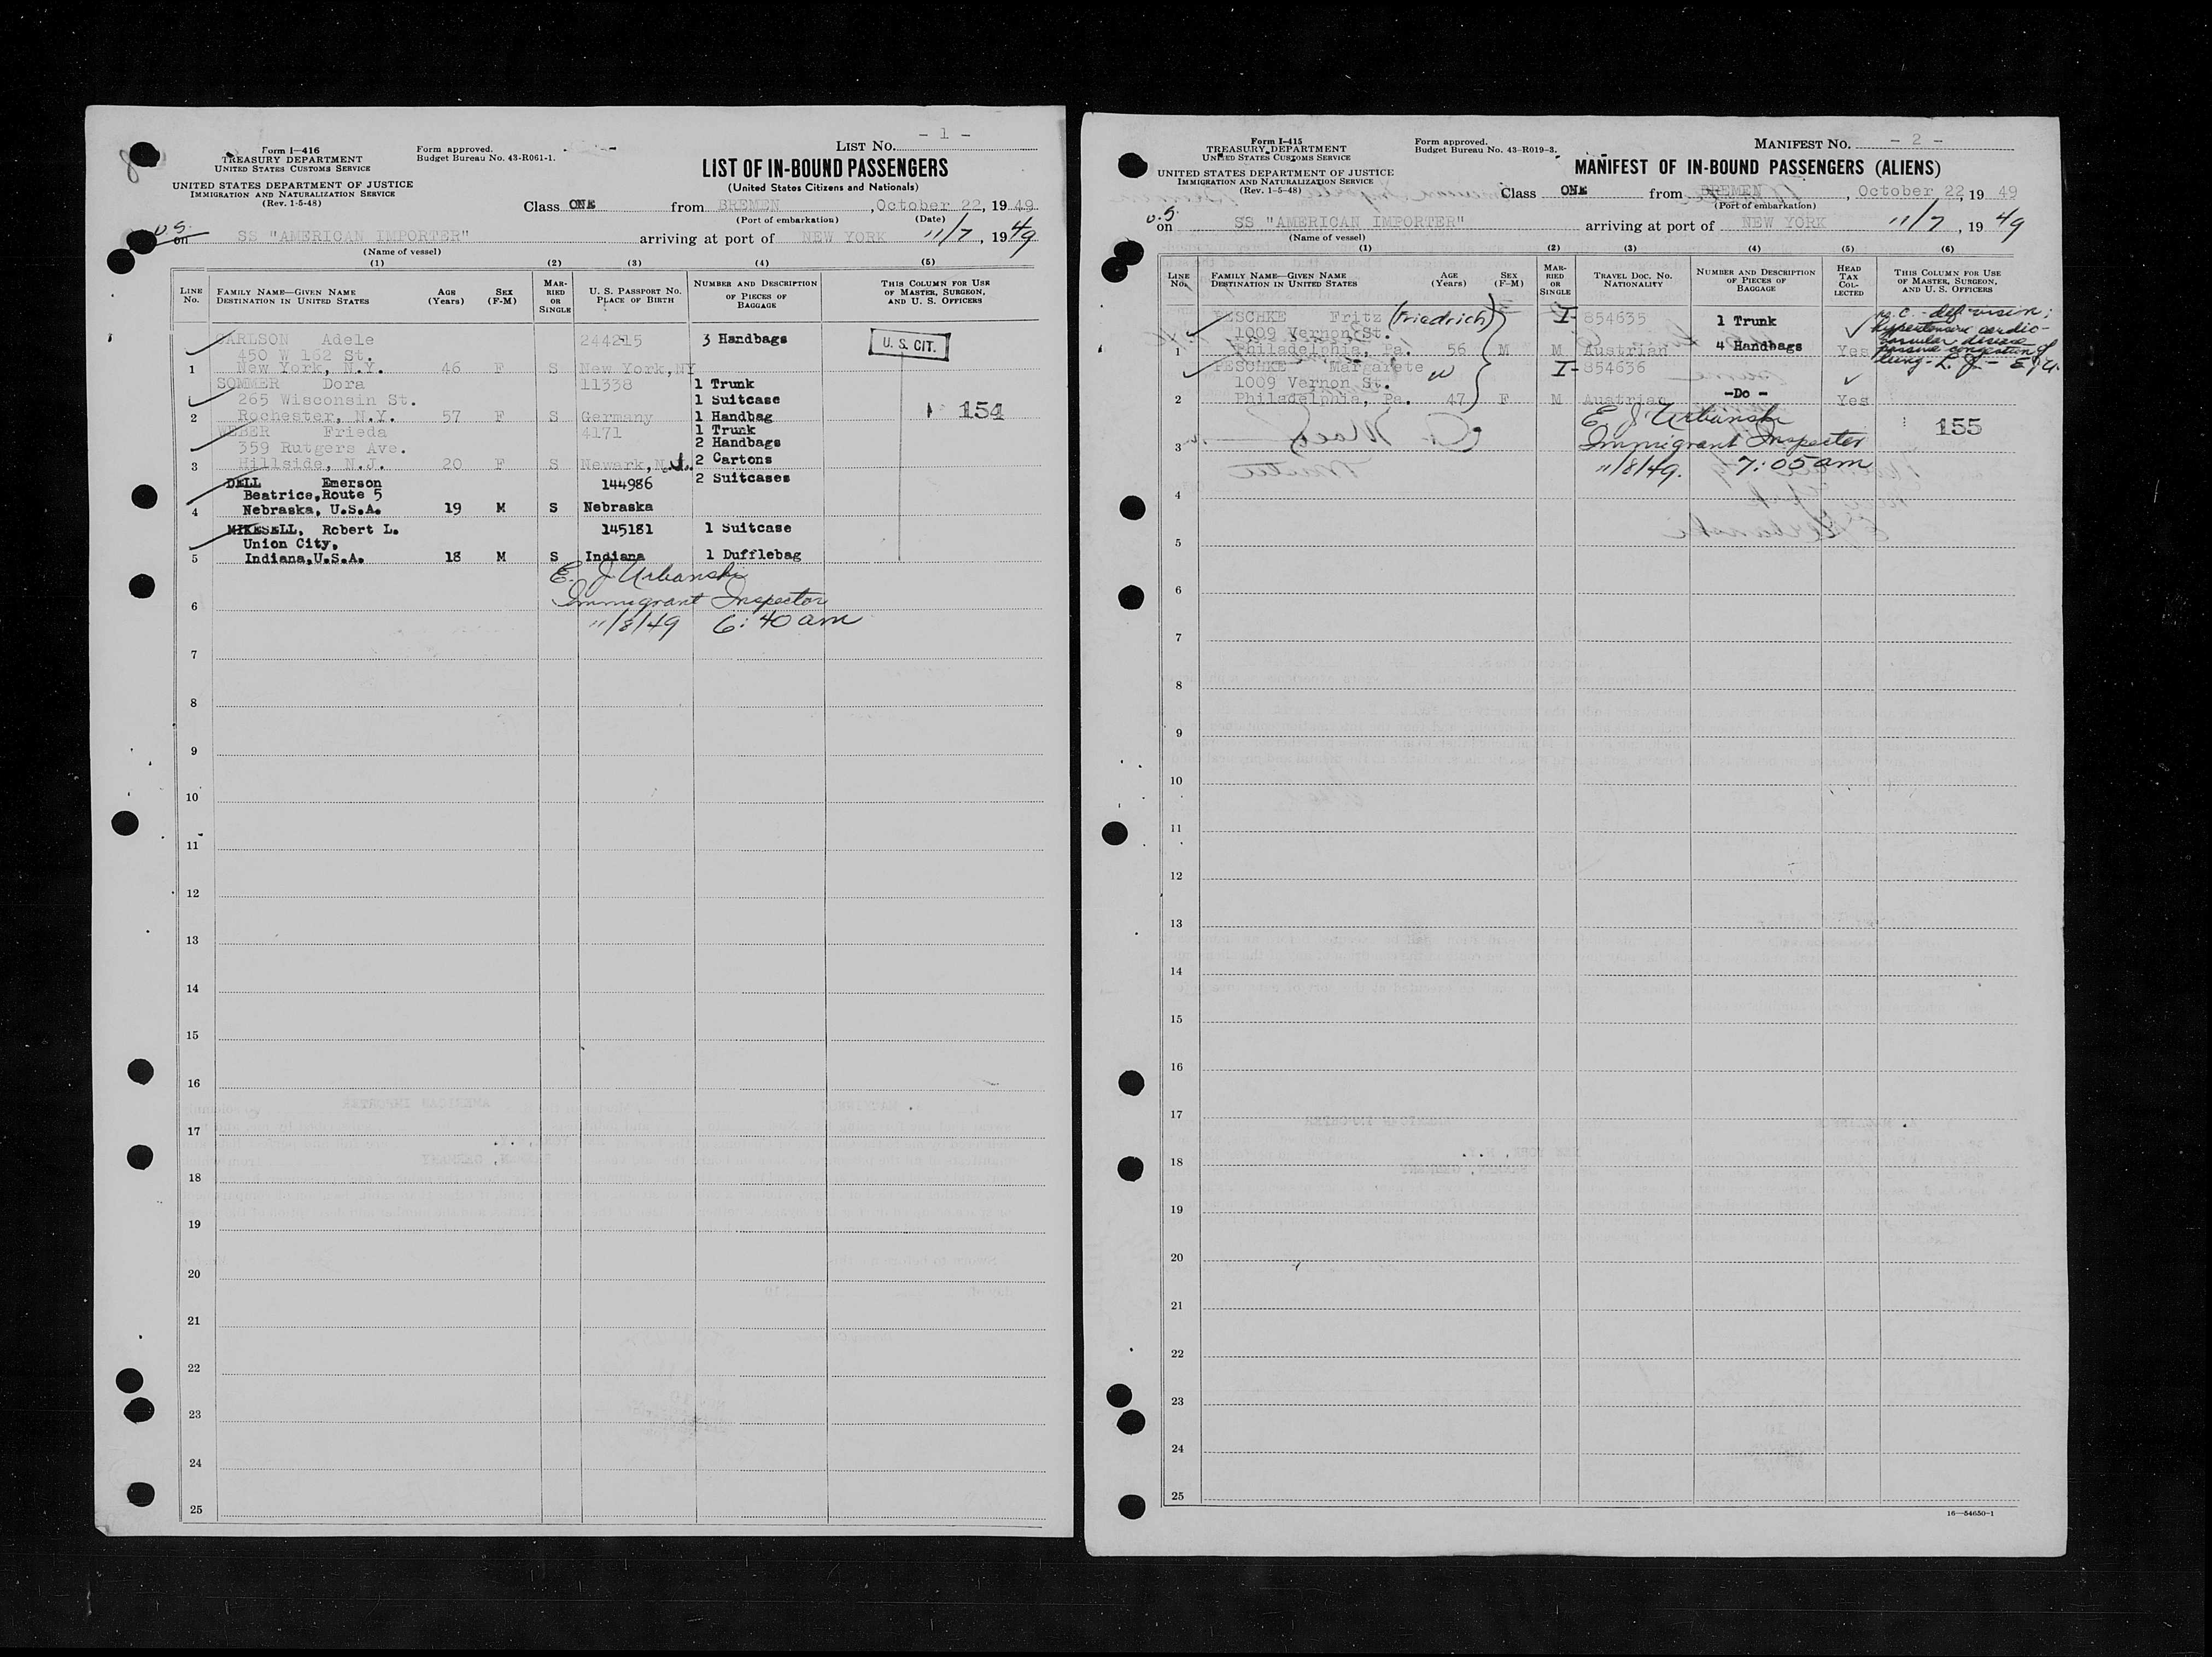 - 1 -
Form I-416
TREASURY DEPARTMENT
UNITED STATES CUSTOMS SERVICE
Form approved.
Budget Bureau No. 43-R061-1.
LIST No.
UNITED STATES DEPARTMENT OF JUSTICE
IMMIGRATION AND NATURALIZATION SERVICE
(Rev. 1-5-48)
LIST OF IN-BOUND PASSENGERS
(United States Citizens and Nationals)
Class ONE from BREMEN, October 22, 1949
(Port of embarkation) (Date)
U.S.
on SS "AMERICAN IMPORTER" arriving at port of NEW YORK 11/7, 1949
(Name of vessel)
(1) (2) (3) (4) (5)
LINE No. FAMILY NAME—GIVEN NAME DESTINATION IN UNITED STATES AGE (Years) SEX (F-M) MARRIED OR SINGLE U. S. PASSPORT No. PLACE OF BIRTH NUMBER AND DESCRIPTION OF PIECES OF BAGGAGE THIS COLUMN FOR USE OF MASTER, SURGEON, AND U. S. OFFICERS
CARLSON Adele 244215 3 Handbags U. S. CIT.
450 W 162 St.
1 New York, N.Y. 46 F S New York, NY
SOMMER Dora 11338 1 Trunk
265 Wisconsin St. 1 Suitcase
2 Rochester, N.Y. 57 F S Germany 1 Handbag 154
WEBER Frieda 4171 1 Trunk
359 Rutgers Ave. 2 Handbags
3 Hillside, N.J. 20 F S Newark, N.J. 2 Cartons
DELL Emerson 144986 2 Suitcases
Beatrice, Route 5
4 Nebraska, U.S.A. 19 M S Nebraska
MIKESELL, Robert L. 145181 1 Suitcase
Union City,
5 Indiana, U.S.A. 18 M S Indiana 1 Dufflebag
E. J Urbanski
6 Immigrant Inspector
11/8/49 6:40 am
7
8
9
10
11
12
13
14
15
16
17
18
19
20
21
22
23
24
25
Form I-415
TREASURY DEPARTMENT
UNITED STATES CUSTOMS SERVICE
Form approved.
Budget Bureau No. 43-R019-3.
MANIFEST No. - 2 -
UNITED STATES DEPARTMENT OF JUSTICE
IMMIGRATION AND NATURALIZATION SERVICE
(Rev. 1-5-48)
MANIFEST OF IN-BOUND PASSENGERS (ALIENS)
Class ONE from BREMEN, October 22, 1949
(Port of embarkation)
U.S.
on SS "AMERICAN IMPORTER" arriving at port of NEW YORK 11/7, 1949
(Name of vessel)
(1) (2) (3) (4) (5) (6)
LINE No. FAMILY NAME—GIVEN NAME DESTINATION IN UNITED STATES AGE (Years) SEX (F-M) MARRIED OR SINGLE TRAVEL DOC. No. NATIONALITY NUMBER AND DESCRIPTION OF PIECES OF BAGGAGE HEAD TAX COLLECTED THIS COLUMN FOR USE OF MASTER, SURGEON, AND U. S. OFFICERS
Fritz (Friedrich) I-854635 1 Trunk def. vision;
1009 Vernon St. 4 Handbags hypertensive cardio-
1 Philadelphia, Pa. 56 M M Austrian Yes vascular disease
passive congestion of
lung
PESCHKE Margarete I-854636
1009 Vernon St.
2 Philadelphia, Pa. 47 F M Austrian -Do- Yes
E. J. Urbanski
3 Immigrant Inspector 155
11/8/49. 7:05 am
4
5
6
7
8
9
10
11
12
13
14
15
16
17
18
19
20
21
22
23
24
25
16—54650-1